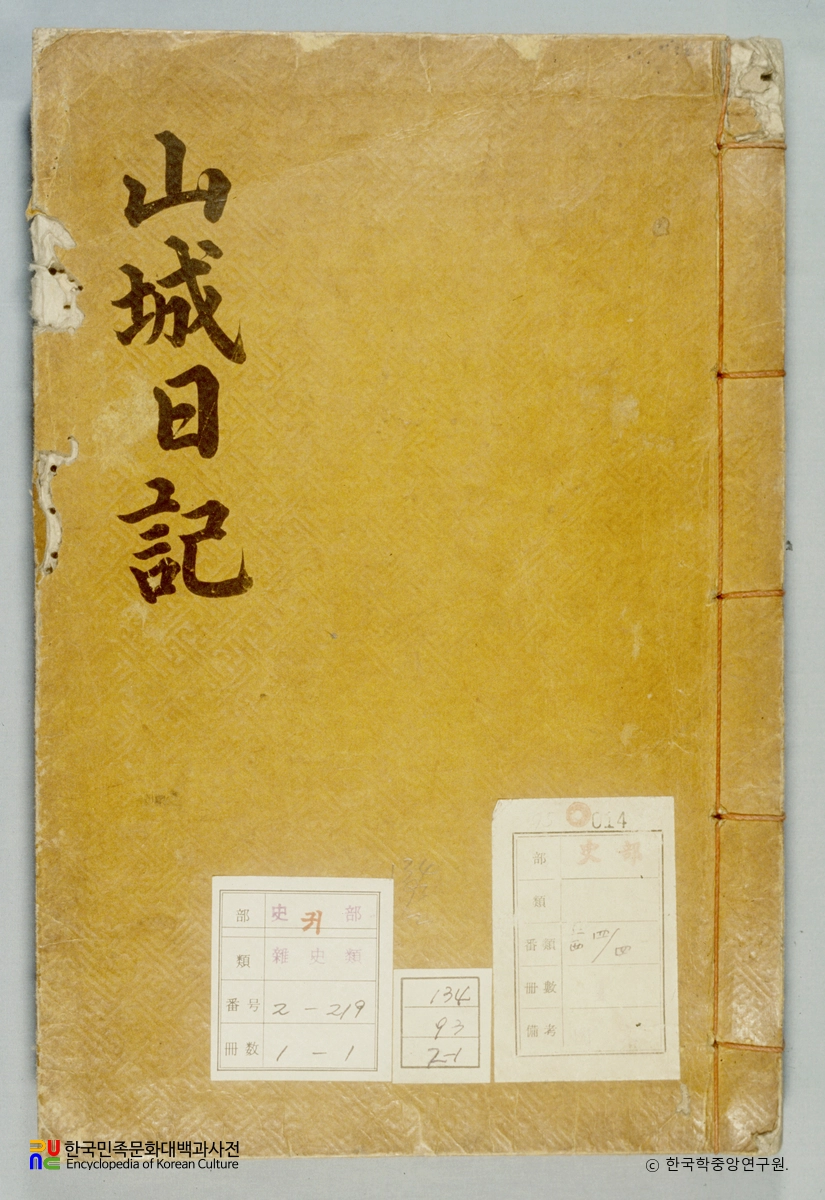 山城日記
部 史 귀 部
類 雜史類
番号 2-219
冊数 1-1
134
93
2-1
014
部 史部
類
番類 四/四
冊數
備考
한국민족문화대백과사전
Encyclopedia of Korean Culture
ⓒ 한국학중앙연구원.